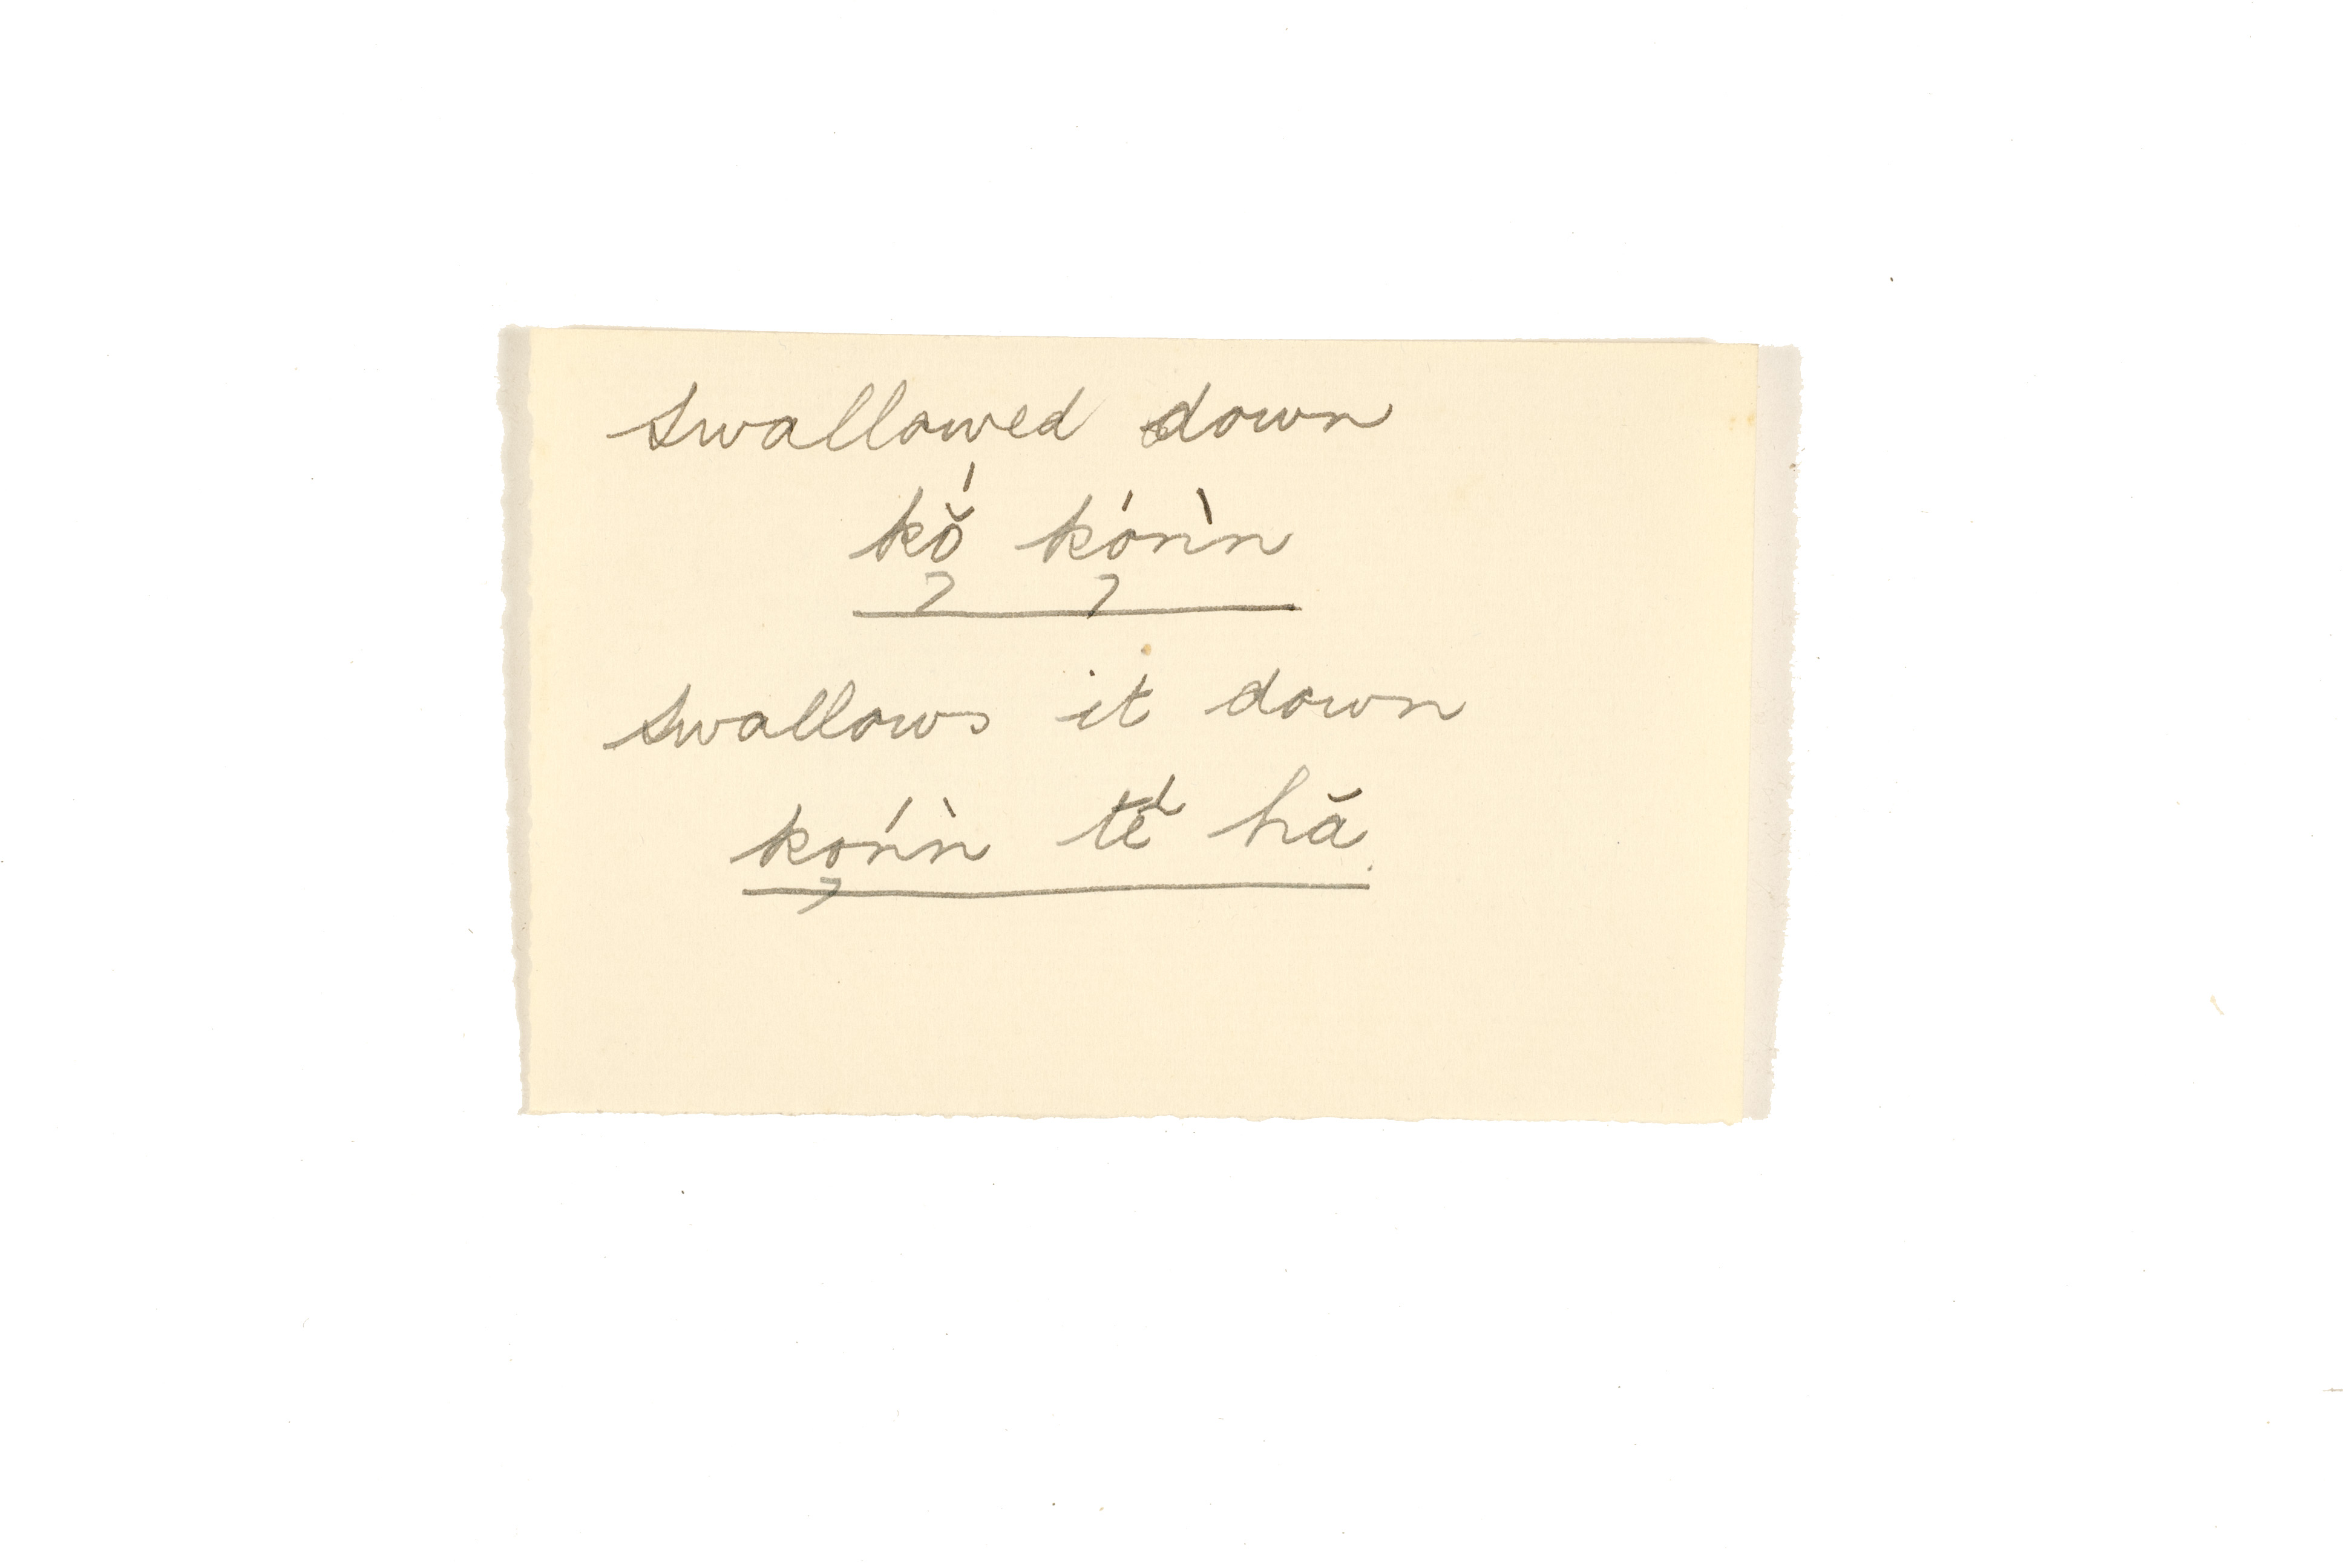 swallowed down
kǫ̆́ kǫ́ǹn
swallows it down
kǫńǹ tĕ́ hă